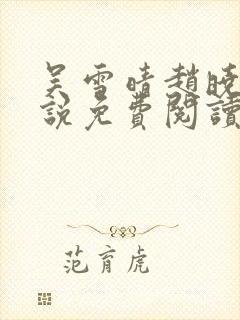 吴雪晴趙曉
說免費閱讀
范育虎